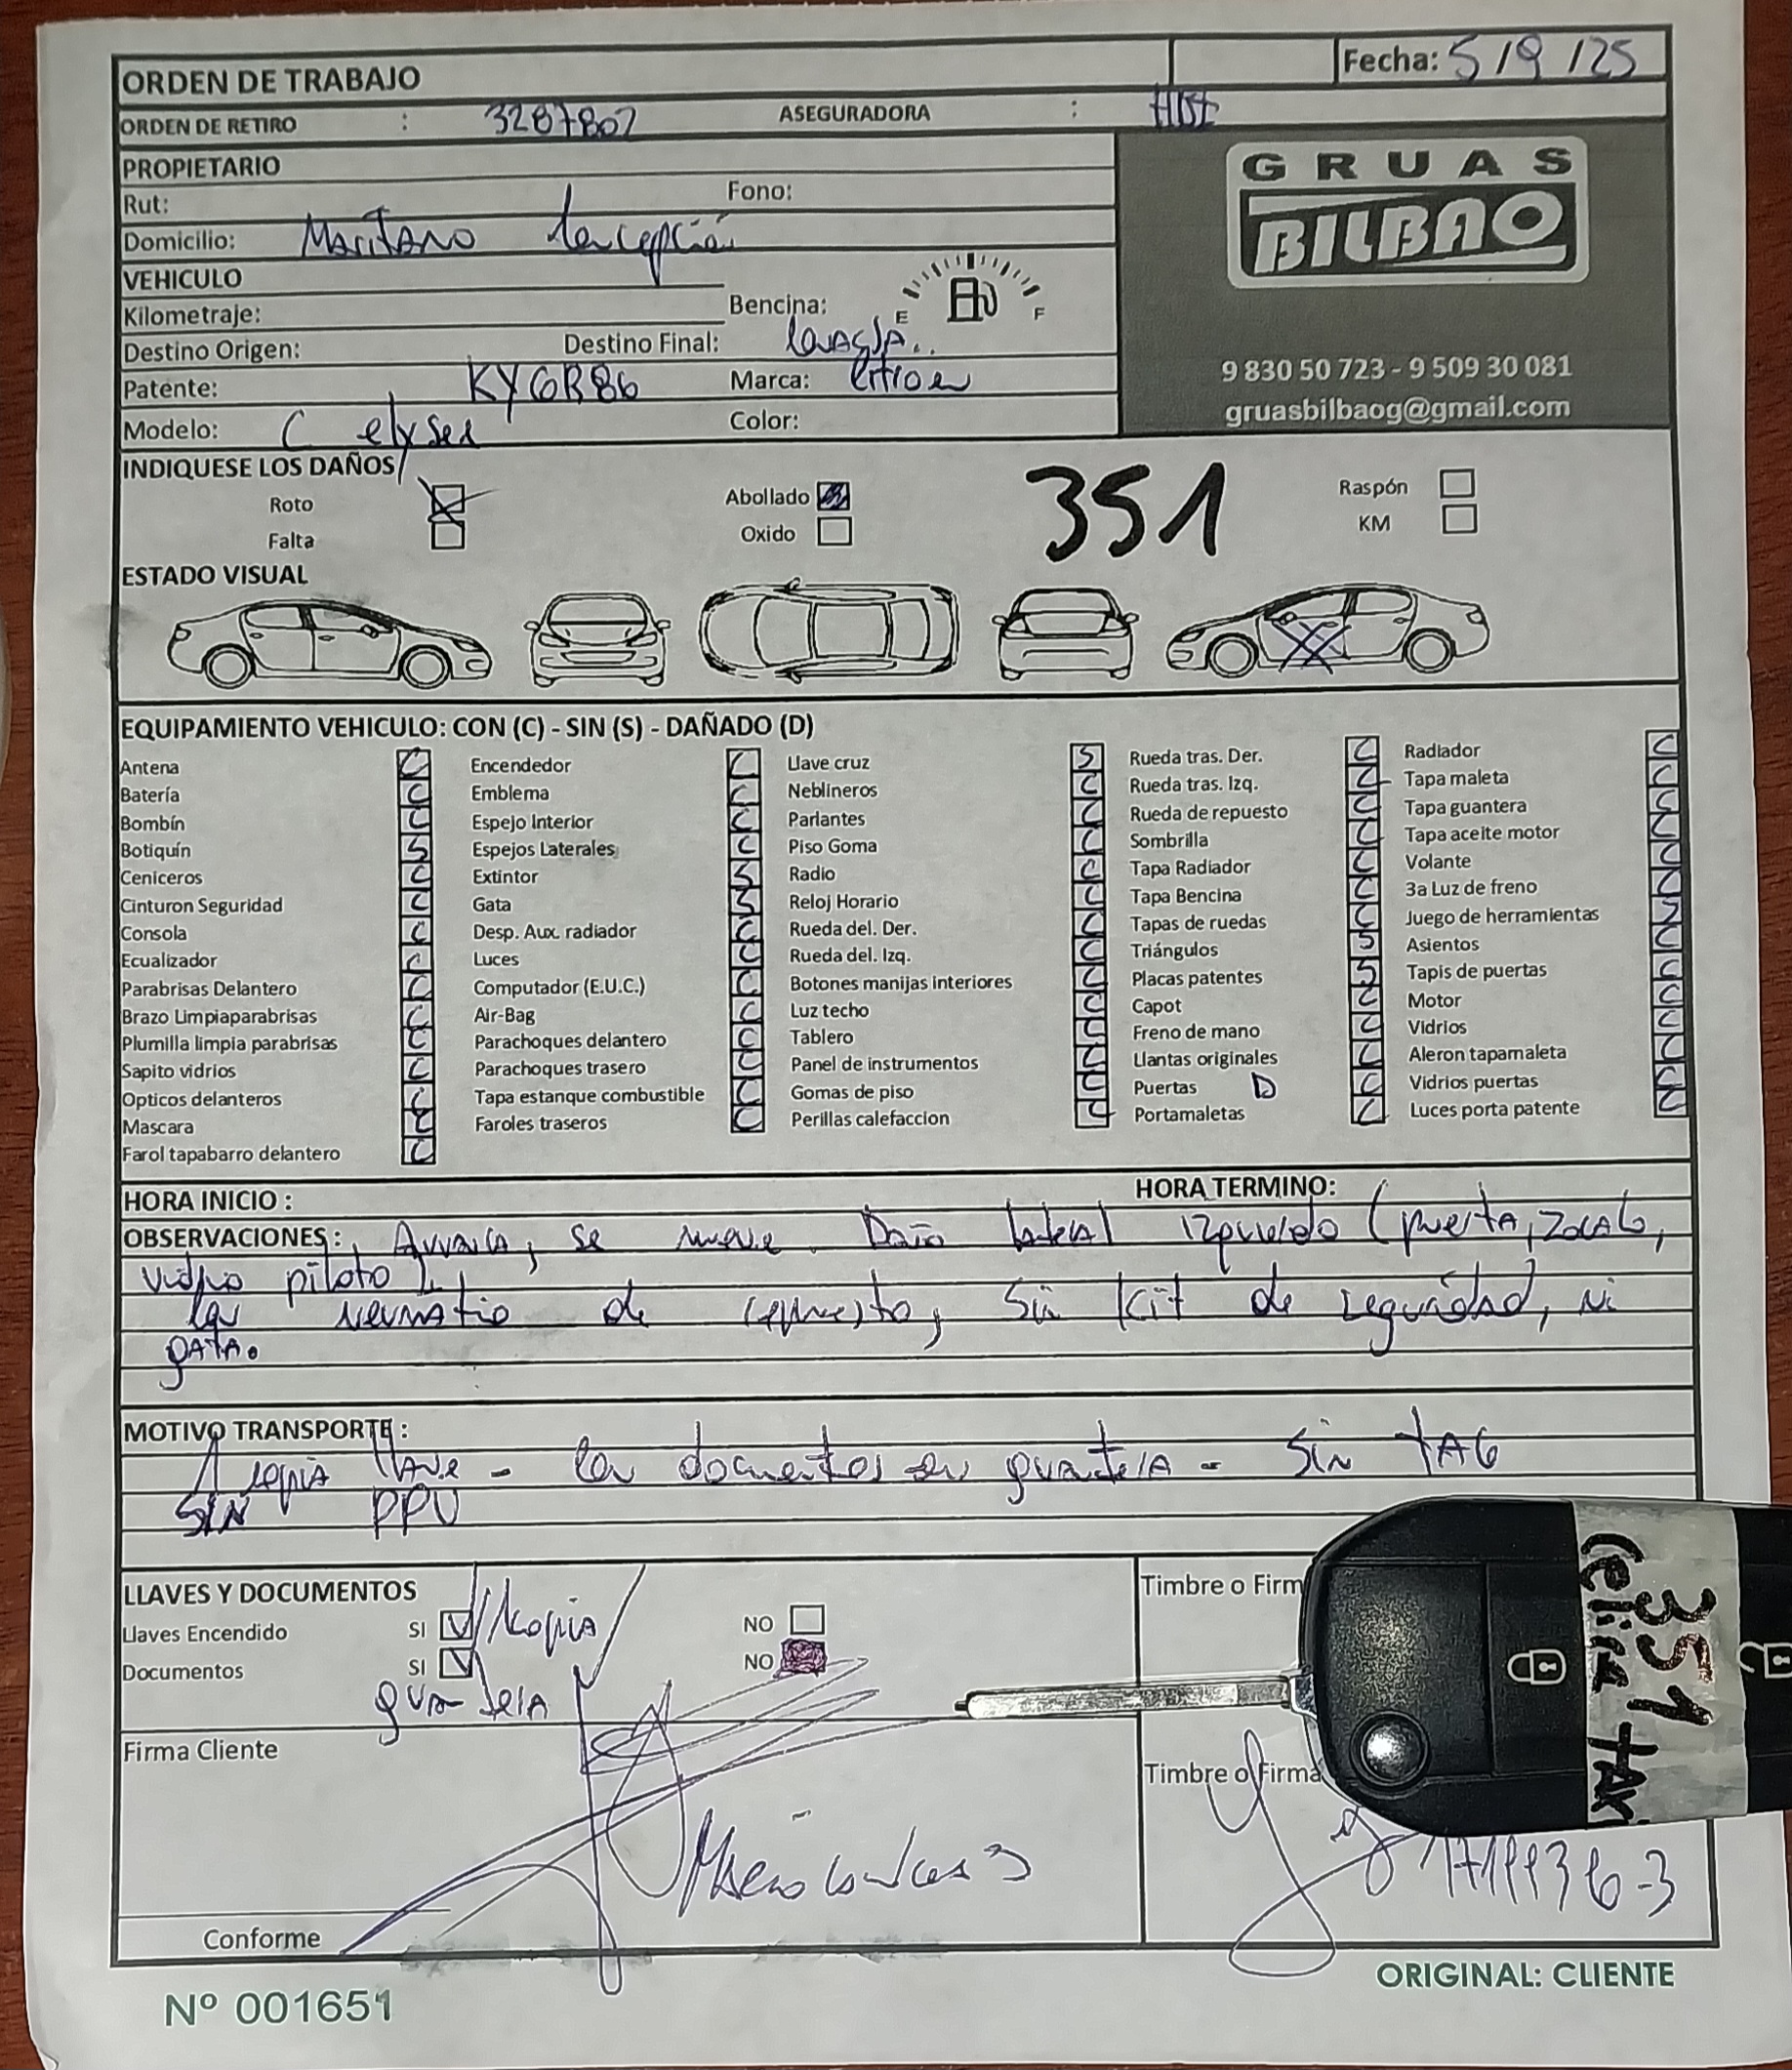 ORDEN DE TRABAJO Fecha: 5/9/25
ORDEN DE RETIRO : 3287807 ASEGURADORA : HDI
PROPIETARIO
Rut: Fono:
Domicilio: Maritano Concepción
VEHICULO
Kilometraje: Bencina: E F
Destino Origen: Destino Final:
Patente: KYGR86 Marca: Citroen
Modelo: C elysee Color:
GRUAS
BILBAO
9 830 50 723 - 9 509 30 081
gruasbilbaog@gmail.com
INDIQUESE LOS DAÑOS
Roto Abollado 351 Raspón
Falta Oxido KM
ESTADO VISUAL
EQUIPAMIENTO VEHICULO: CON (C) - SIN (S) - DAÑADO (D)
Antena C
Batería C
Bombín C
Botiquín S
Ceniceros C
Cinturon Seguridad C
Consola C
Ecualizador C
Parabrisas Delantero C
Brazo Limpiaparabrisas C
Plumilla limpia parabrisas C
Sapito vidrios C
Opticos delanteros C
Mascara C
Farol tapabarro delantero C
Encendedor C
Emblema C
Espejo Interior C
Espejos Laterales C
Extintor S
Gata S
Desp. Aux. radiador C
Luces C
Computador (E.U.C.) C
Air-Bag C
Parachoques delantero C
Parachoques trasero C
Tapa estanque combustible C
Faroles traseros C
Llave cruz S
Neblineros C
Parlantes C
Piso Goma C
Radio C
Reloj Horario C
Rueda del. Der. C
Rueda del. Izq. C
Botones manijas interiores C
Luz techo C
Tablero C
Panel de instrumentos C
Gomas de piso C
Perillas calefaccion C
Rueda tras. Der. C
Rueda tras. Izq. C
Rueda de repuesto C
Sombrilla C
Tapa Radiador C
Tapa Bencina C
Tapas de ruedas C
Triángulos S
Placas patentes S
Capot C
Freno de mano C
Llantas originales C
Puertas D C
Portamaletas C
Radiador C
Tapa maleta C
Tapa guantera C
Tapa aceite motor C
Volante C
3a Luz de freno C
Juego de herramientas
Asientos C
Tapis de puertas C
Motor C
Vidrios C
Aleron tapamaleta C
Vidrios puertas C
Luces porta patente C
HORA INICIO : HORA TERMINO:
OBSERVACIONES: Arranca, se mueve. Daño lateral izquierdo (puerta, zocalo,
vidrio piloto)
Con neumatico de repuesto, Sin Kit de seguridad, ni
gata.
MOTIVO TRANSPORTE :
1 copia llave - Con documentos en guantera - Sin TAG
SIN PPU
LLAVES Y DOCUMENTOS
Llaves Encendido SI 1 copia NO
Documentos SI NO
guantera
Timbre o Firm
Firma Cliente
Timbre o Firma
Conforme
351
Nº 001651
ORIGINAL: CLIENTE